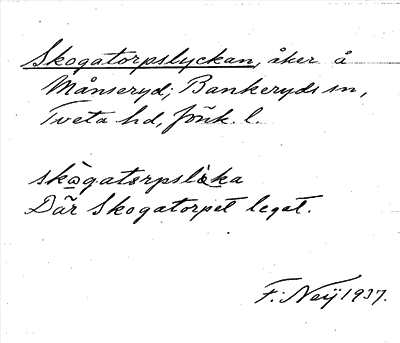 Skogatorpslyckan, åker å
Månseryd; Bankeryds sn,
Tveta hd, Jönk. l.
skògatorpslỳka
Där Skogatorpet legat.
F. Neij 1937.